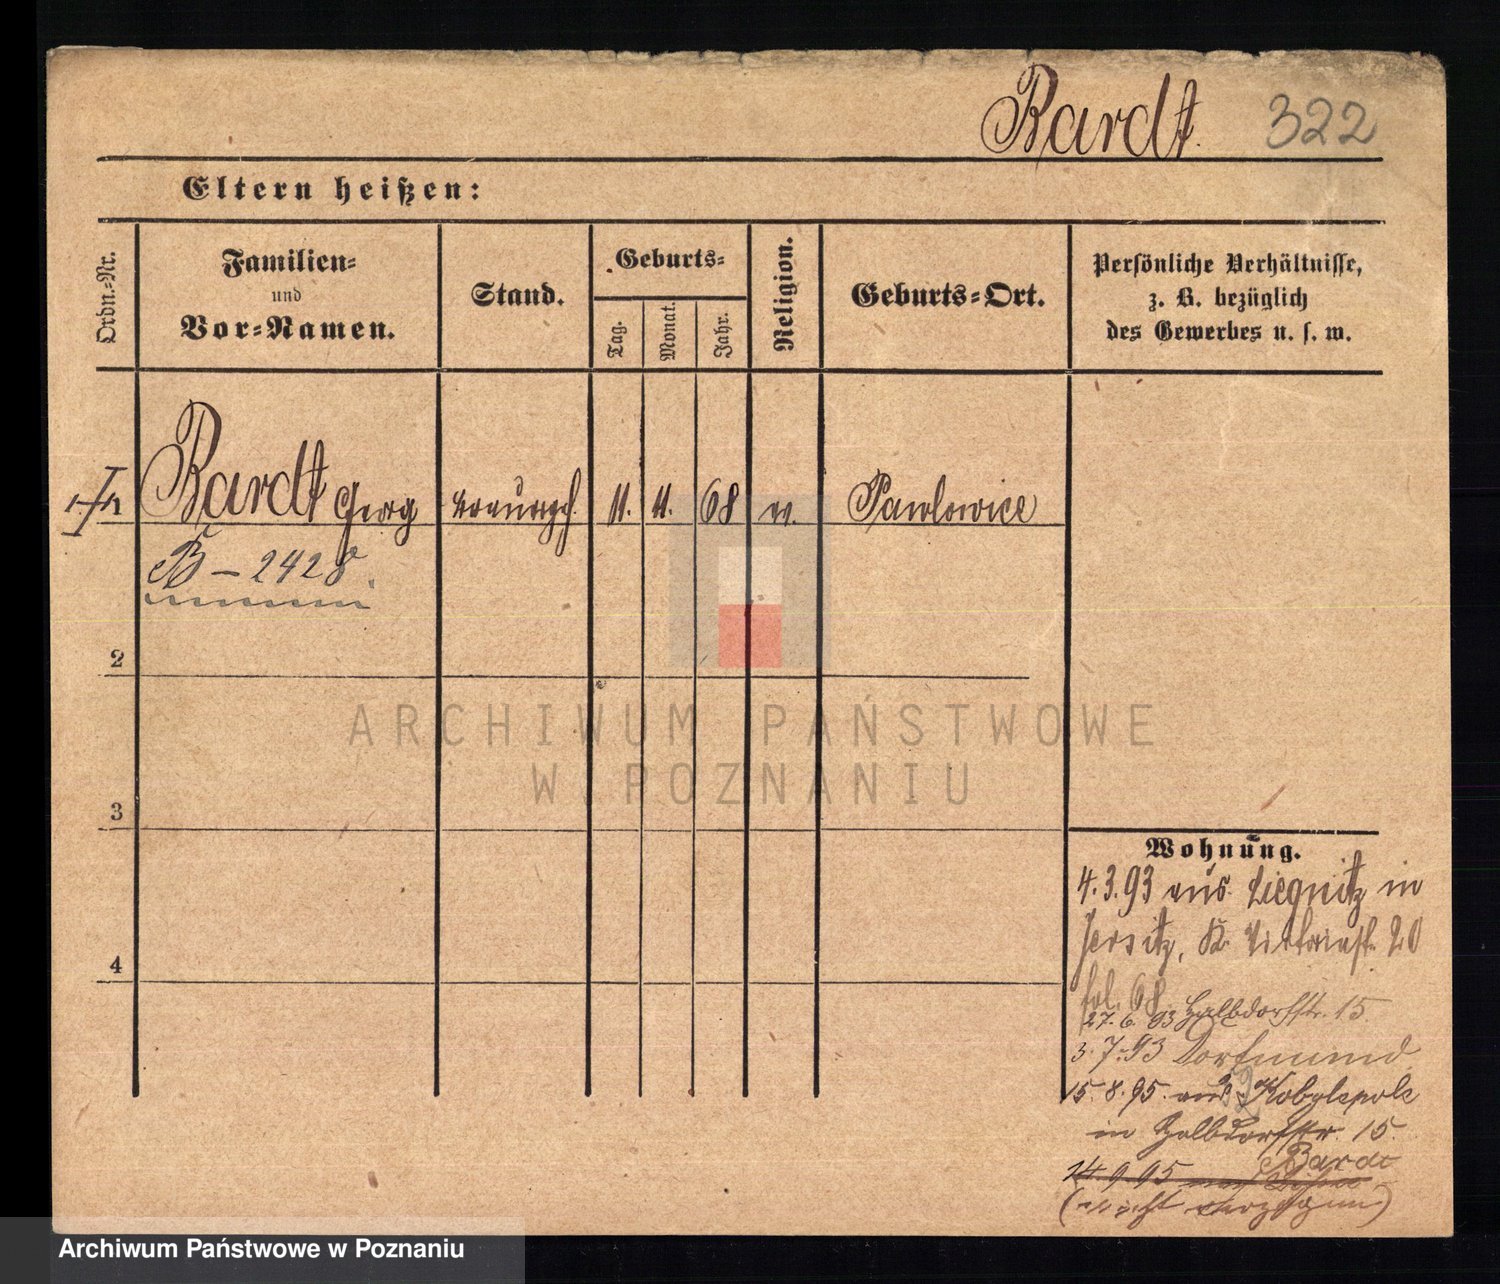 Bardt. 322
Eltern heißen:
Ordn.-Nr.
Familien-
und
Vor-Namen.
Stand.
Geburts-
Tag.
Monat.
Jahr.
Religion.
Geburts-Ort.
Persönliche Verhältnisse,
z. B. bezüglich
des Gewerbes u. s. w.
1 Bardt Georg 11. 11. 68 Pawlowice
B - 2428.
2
3
4
Wohnung.
4.3.93 aus Liegnitz in
Jersitz, Kr. 20
fol. 68
27. 6. 93 Halbdorfstr. 15
3. 7. 93 Dortmund
15. 8. 95. aus Kobylepole
in Halbdorfstr. 15.
Bardt
14. 9 95 nach
(nicht verzogen)
ARCHIWUM PAŃSTWOWE
W POZNANIU
Archiwum Państwowe w Poznaniu